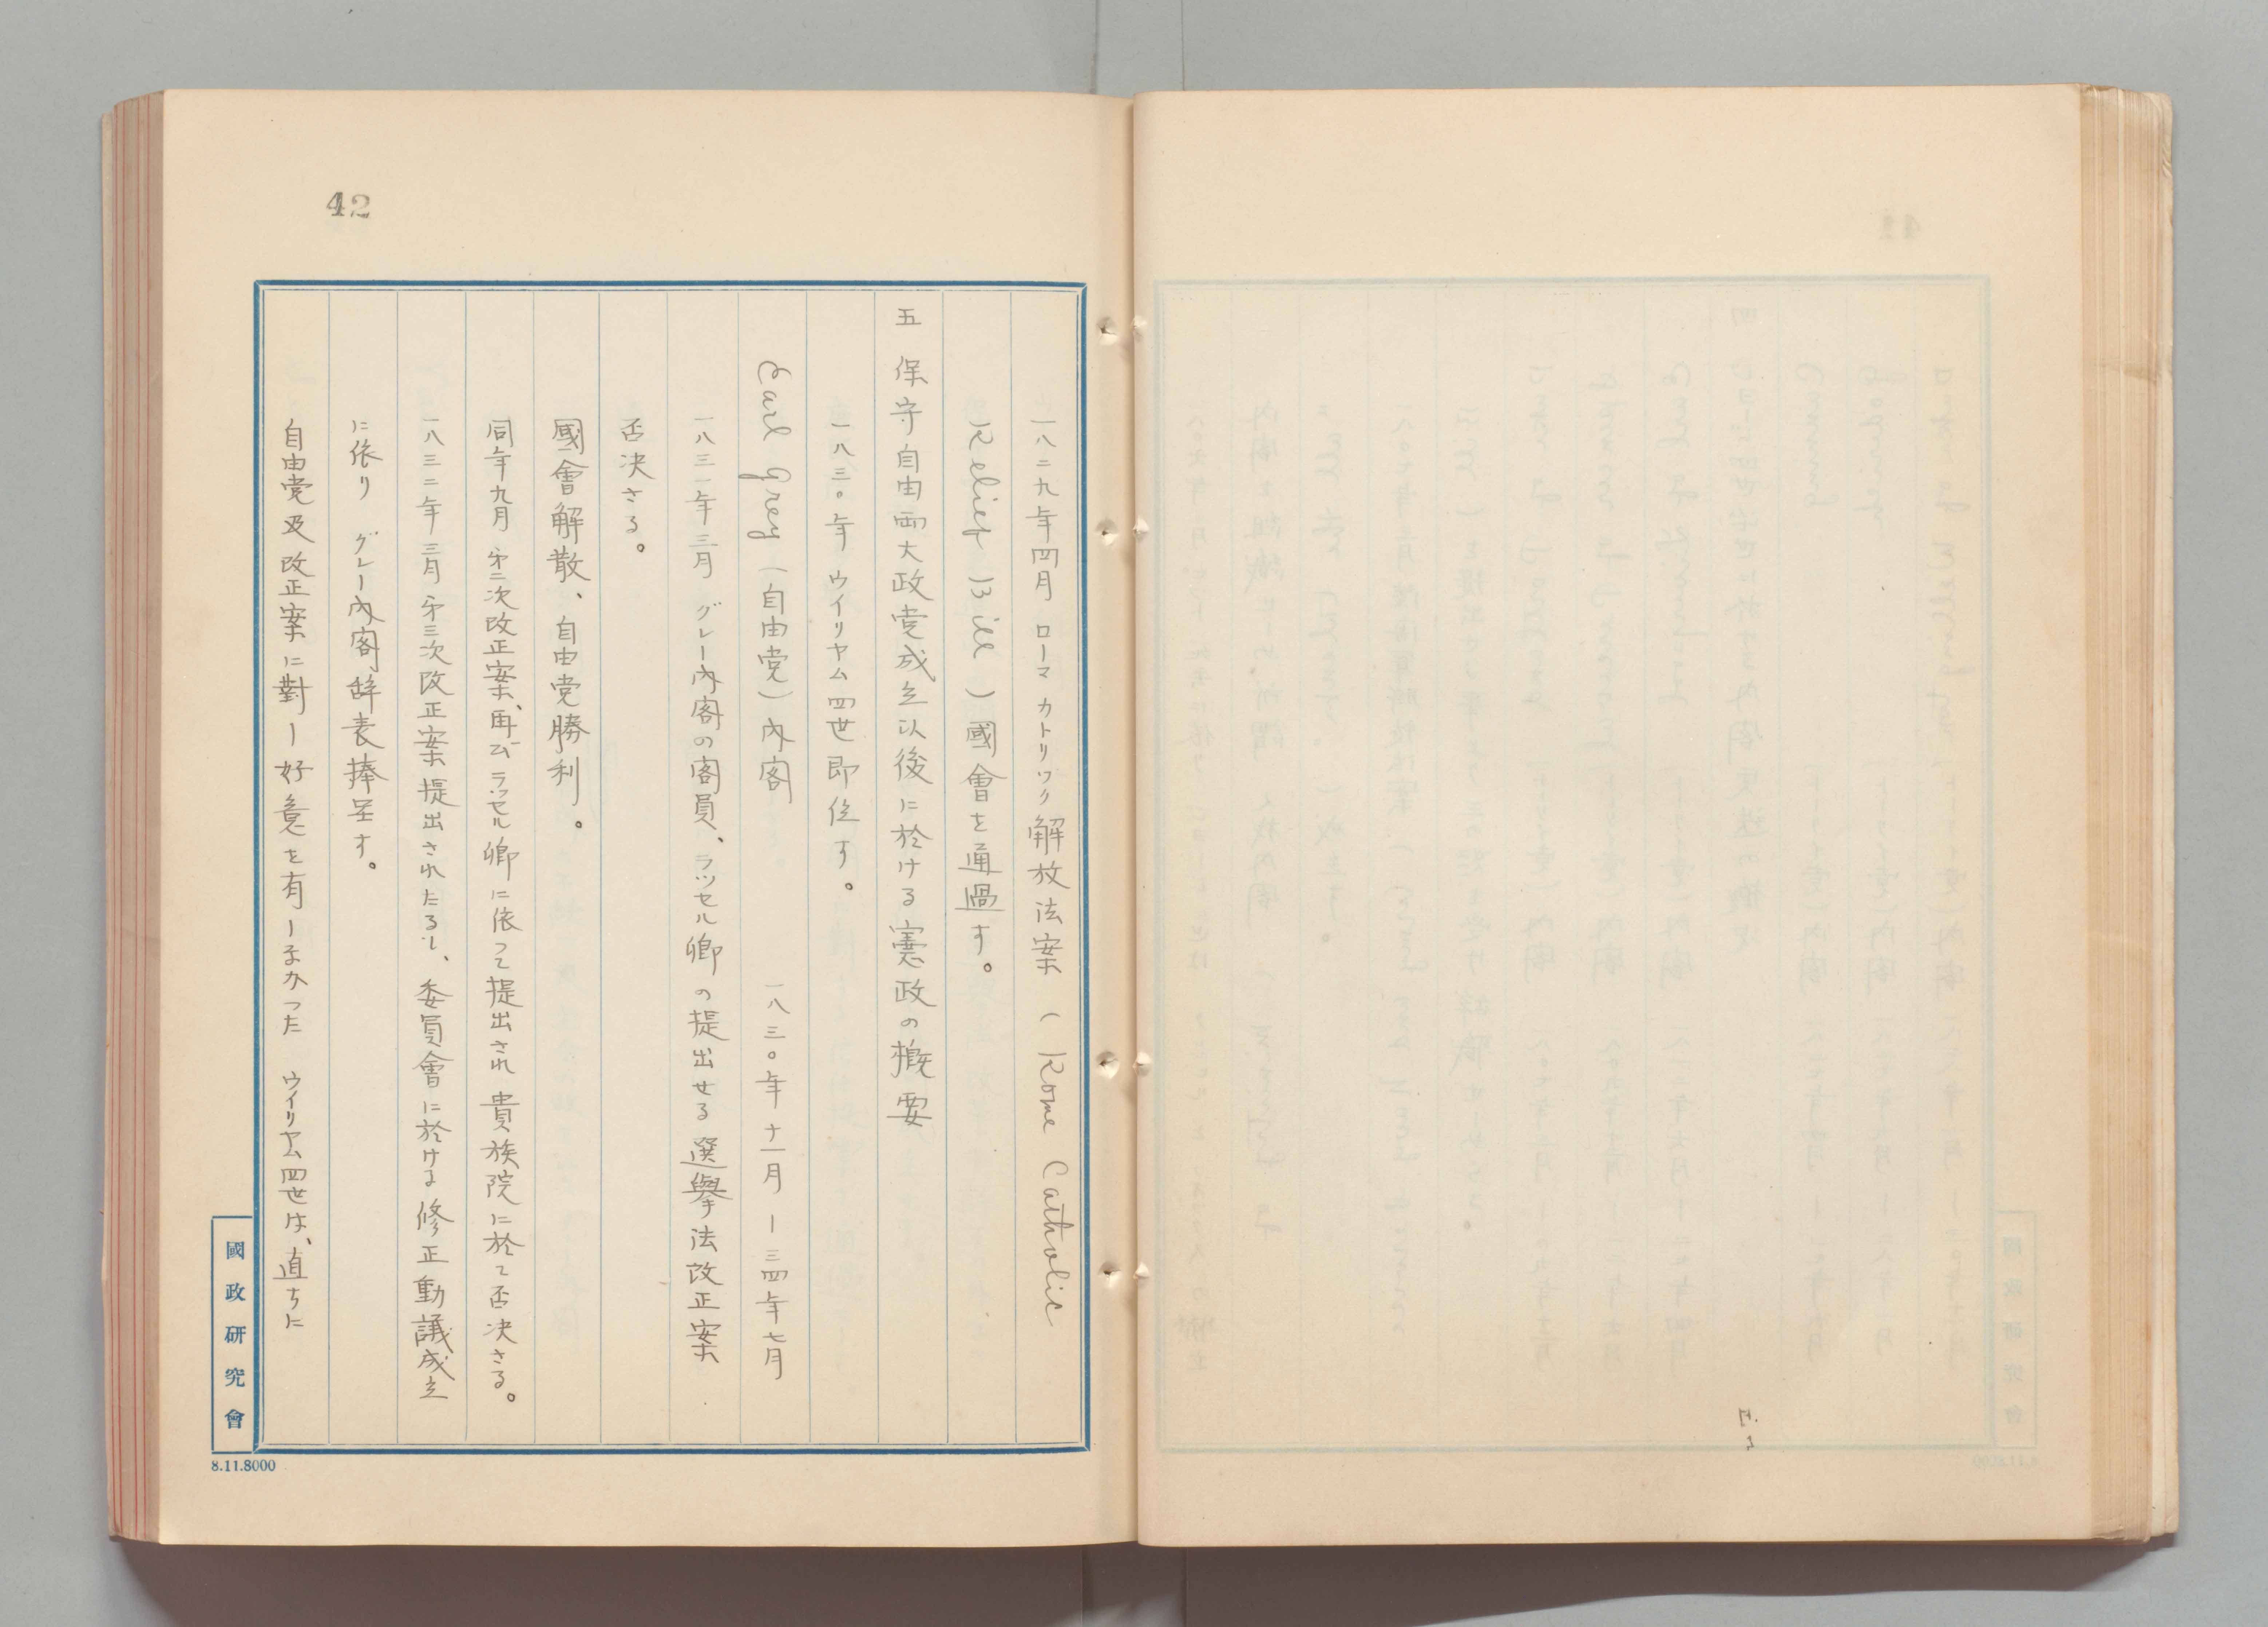 42
一八二九年四月 ローマ カトリツク 解放法案 (Rome Catholic
Relief Bill) 國會を通過す。
五 保守自由両大政党成立以後に於ける憲政の概要
一八三〇年 ウイリヤム四世即位す。
Earl Grey (自由党) 內客 一八三〇年十一月ー三四年七月
一八三一年三月 グレー內客の客員、ラツセル卿の提出せる選擧法改正案
否決さる。
國會解散、自由党勝利。
同年九月 㐧二次改正案、再び ラツセル卿に依つて提出され 貴族院に於て否決さる。
一八三二年三月 㐧三次改正案提出されたるも、委員會に於ける修正動議成立
に依り グレー內客辞表捧呈す。
自由党及改正案に對し好意を有しなかつた ウイリヤム四世は、直ちに
國政研究會
8.11.8000